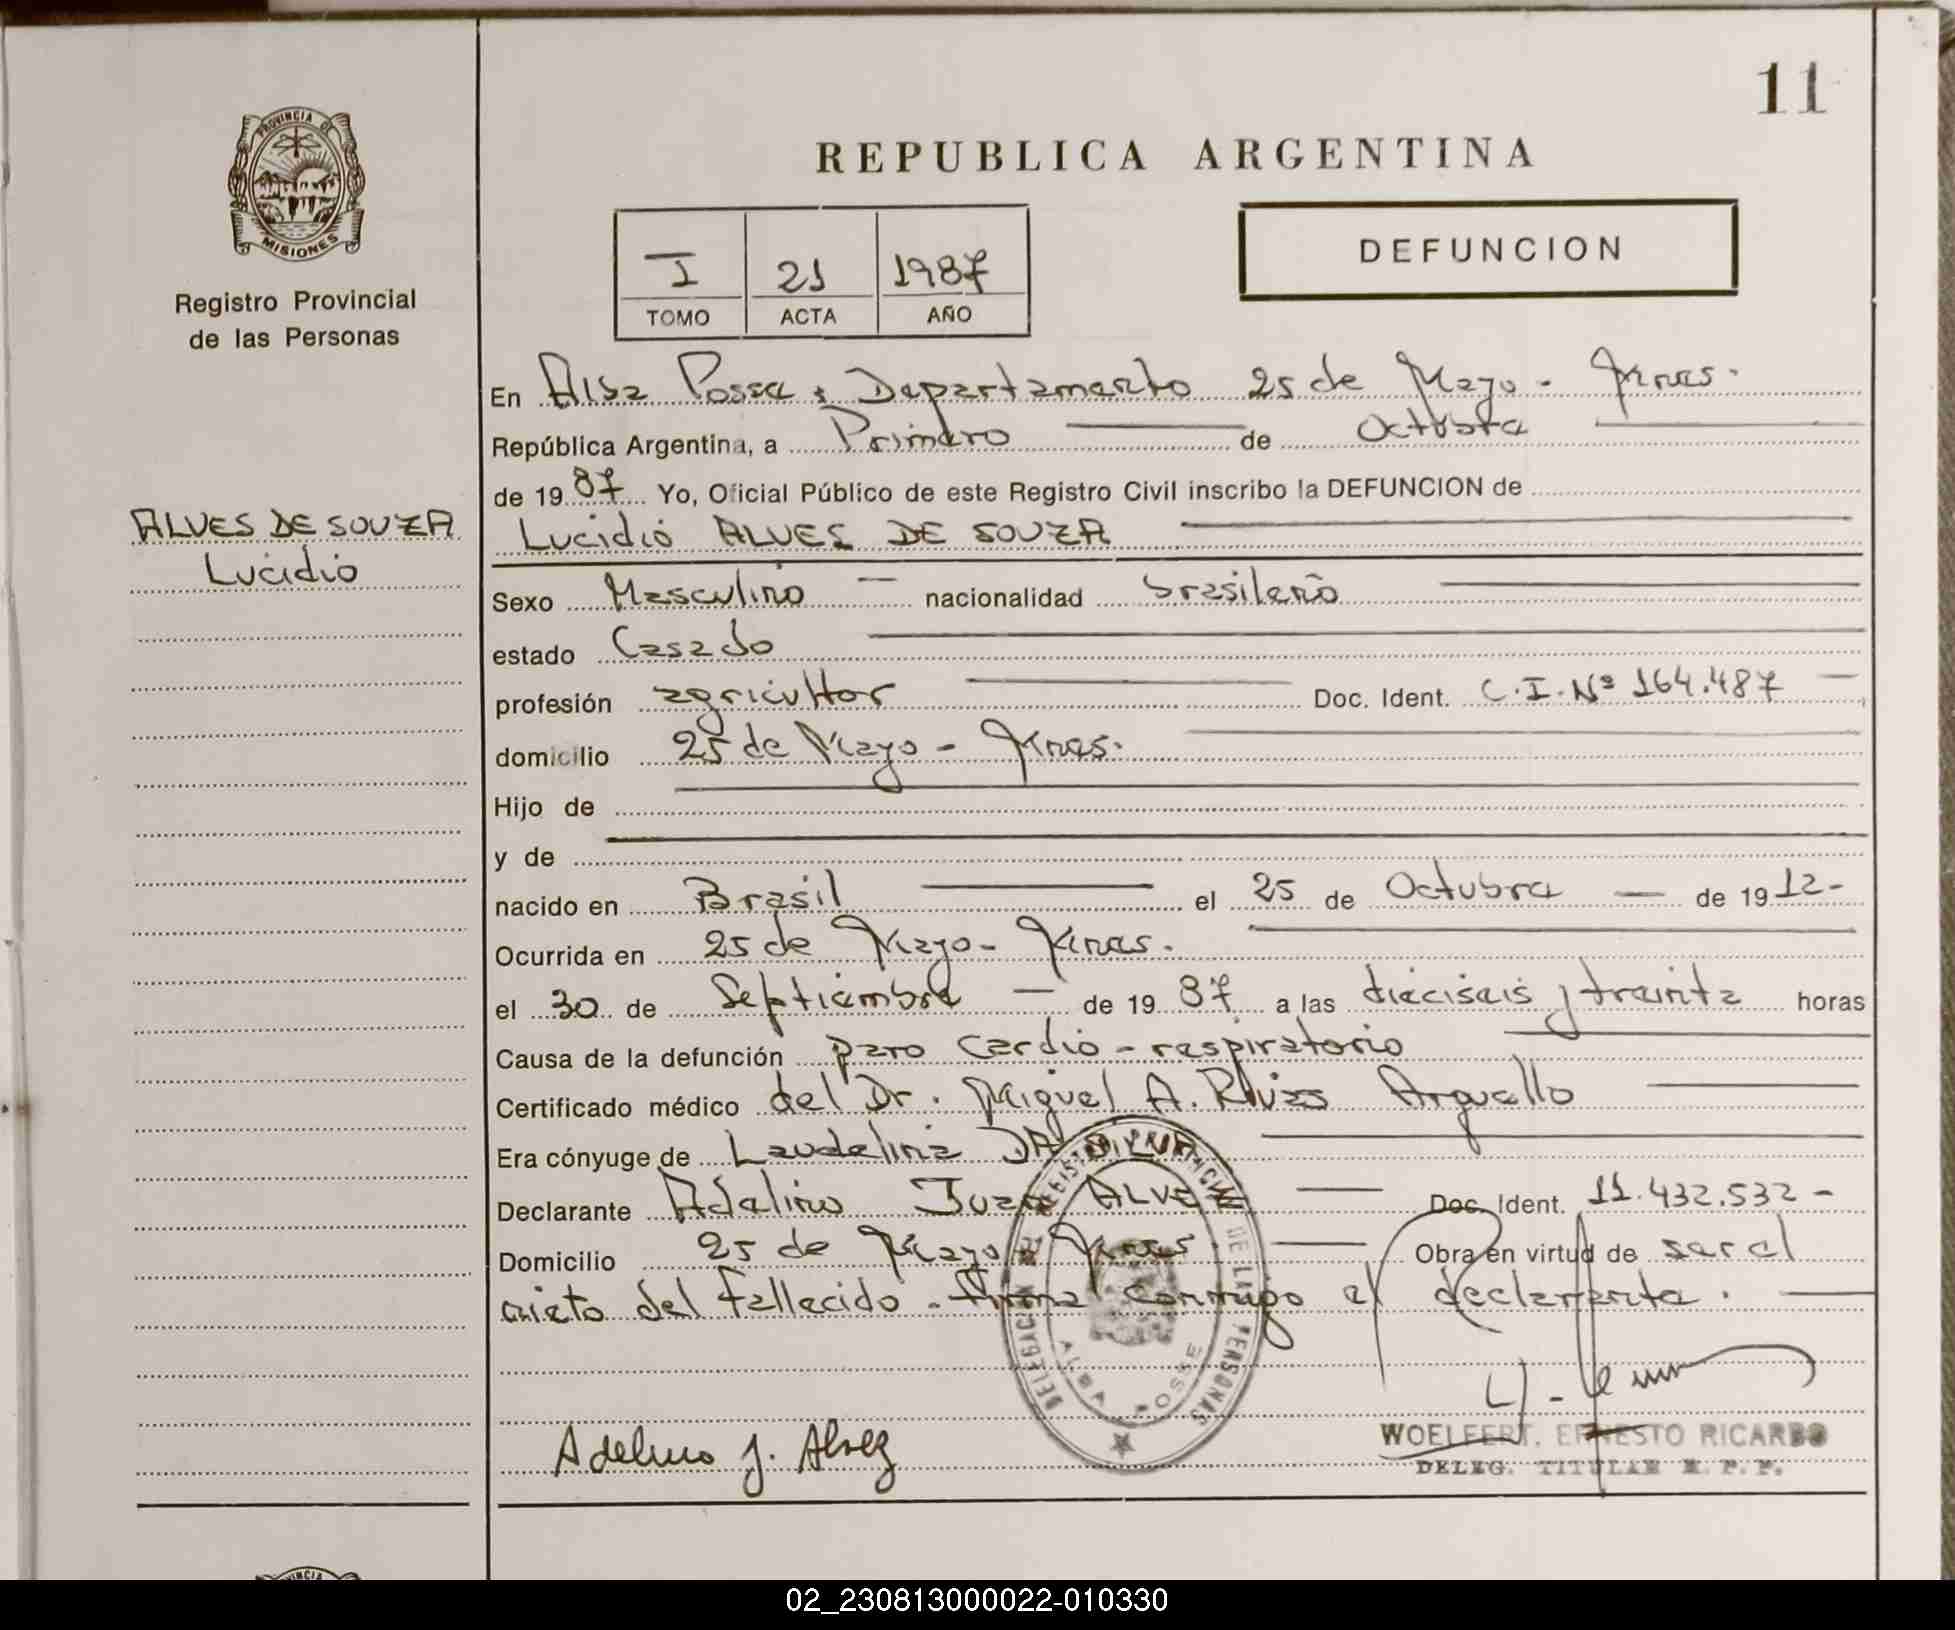 11
PROVINCIA DE
MISIONES
Registro Provincial
de las Personas
REPUBLICA ARGENTINA
I 21 1987
TOMO ACTA AÑO
DEFUNCION
ALVES DE SOUZA
Lucidio
En Alba Posse, Departamento 25 de Mayo - Mnes.
República Argentina, a Primero de Octubre
de 19 87 Yo, Oficial Público de este Registro Civil inscribo la DEFUNCION de
Lucidio ALVES DE SOUZA
Sexo Masculino nacionalidad brasileño
estado Casado
profesión agricultor Doc. Ident. C.I. Nº 164.487
domicilio 25 de Mayo - Mnes.
Hijo de
y de
nacido en Brasil el 25 de Octubre de 19 12-
Ocurrida en 25 de Mayo - Mnes.
el 30 de Septiembre de 19 87 a las dieciseis y treinta horas
Causa de la defunción paro cardio-respiratorio
Certificado médico del Dr. Miguel A. Arguello
Era cónyuge de Laudelina DA SILVA
Declarante Adelino Juan ALVES Doc. Ident. 11.432.532-
Domicilio 25 de Mayo - Mnes. Obra en virtud de ser el
nieto del fallecido. Firma conmigo el declarante.
DELEGACION DEL REGISTRO PROVINCIAL DE LAS PERSONAS
ALBA POSSE
Adelino J. Alvez
WOELFERT, ERNESTO RICARDO
DELEG. TITULAR R. P. P.
PROVINCIA
02_230813000022-010330